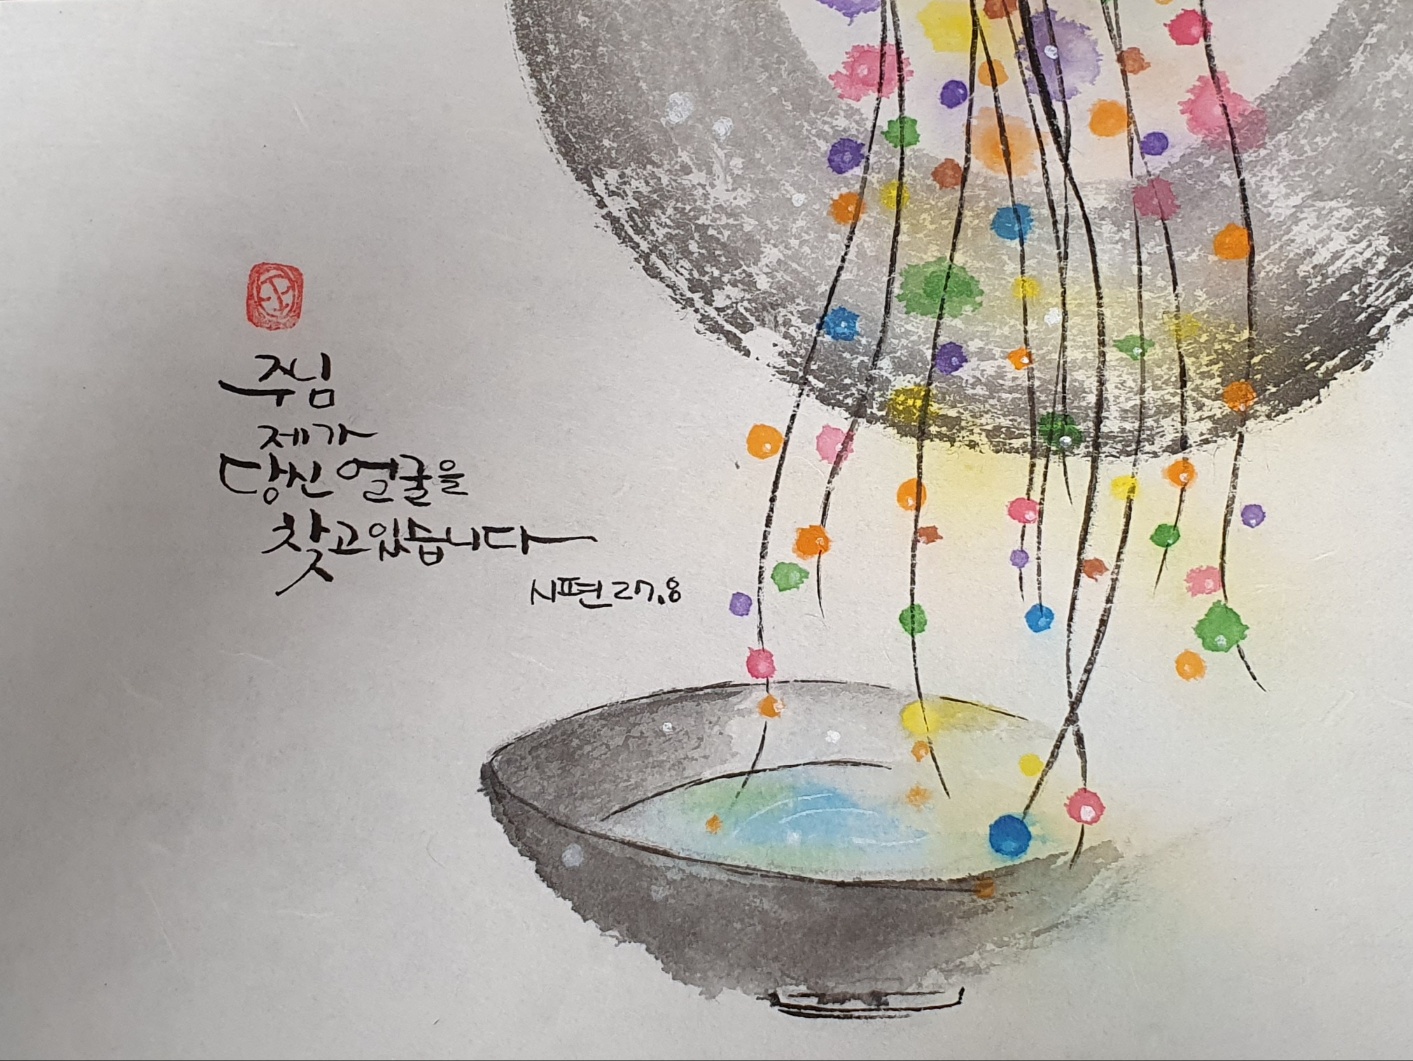 주님
제가
당신 얼굴을
찾고있습니다
시편 27.8